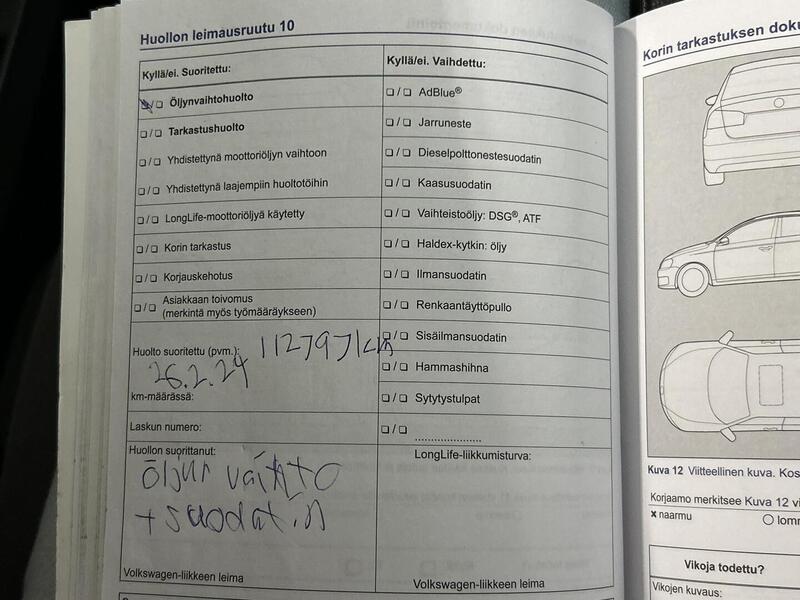 Huollon leimausruutu 10
Kyllä/ei. Suoritettu:
❑/❑ Öljynvaihtohuolto
❑/❑ Tarkastushuolto
❑/❑ Yhdistettynä moottoriöljyn vaihtoon
❑/❑ Yhdistettynä laajempiin huoltotöihin
❑/❑ LongLife-moottoriöljyä käytetty
❑/❑ Korin tarkastus
❑/❑ Korjauskehotus
❑/❑ Asiakkaan toivomus
(merkintä myös työmääräykseen)
Huolto suoritettu (pvm.): 112797km
26.2.24
km-määrässä:
Laskun numero:
Huollon suorittanut:
öljyn vaihto
+ suodatin
Volkswagen-liikkeen leima
Kyllä/ei. Vaihdettu:
❑/❑ AdBlue®
❑/❑ Jarruneste
❑/❑ Dieselpolttonestesuodatin
❑/❑ Kaasusuodatin
❑/❑ Vaihteistoöljy: DSG®, ATF
❑/❑ Haldex-kytkin: öljy
❑/❑ Ilmansuodatin
❑/❑ Renkaantäyttöpullo
❑/❑ Sisäilmansuodatin
❑/❑ Hammashihna
❑/❑ Sytytystulpat
❑/❑ ....................
LongLife-liikkumisturva:
Volkswagen-liikkeen leima
Korin tarkastuksen doku
Kuva 12 Viitteellinen kuva. Kos
Korjaamo merkitsee Kuva 12 vi
x naarmu
○ lomm
Vikoja todettu?
Vikojen kuvaus: